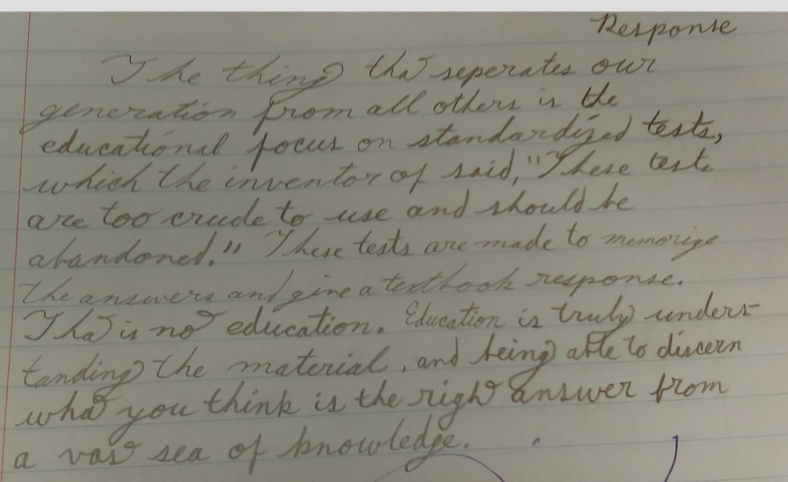 Response
The thing that seperates our
generation from all others is the
educational focus on standardized tests,
which the inventor of said, "These tests
are too crude to use and should be
abandoned." These tests are made to memorize
the answers and give a textbook response.
That is not education. Education is truly unders-
tanding the material, and being able to discern
what you think is the right answer from
a vast sea of knowledge.